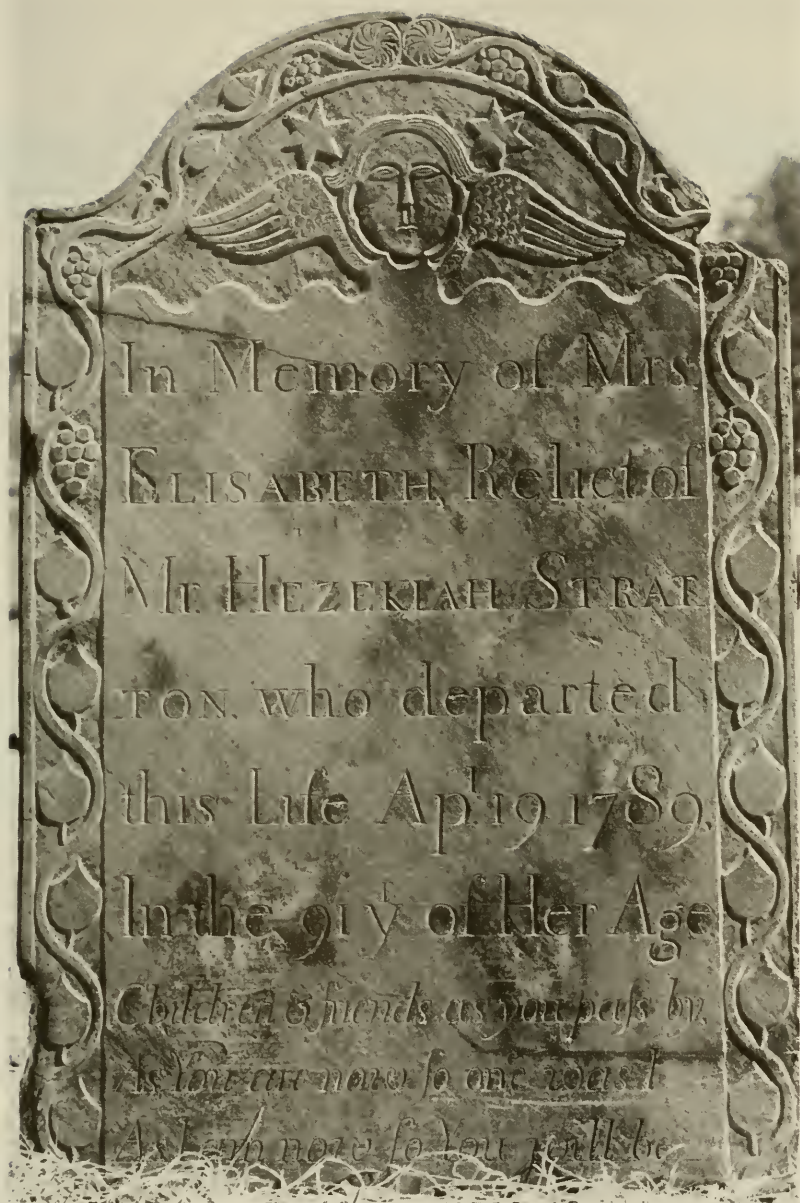 In Memory of Mrs.
ELISABETH, Relict of
Mr. HEZEKIAH STRAT
TON. who departed
this Life Apl. 19 1789.
In the 91 yr of Her Age
Children & friends as you paſs by.
As You are now ſo one was I
As I am now ſo You will be